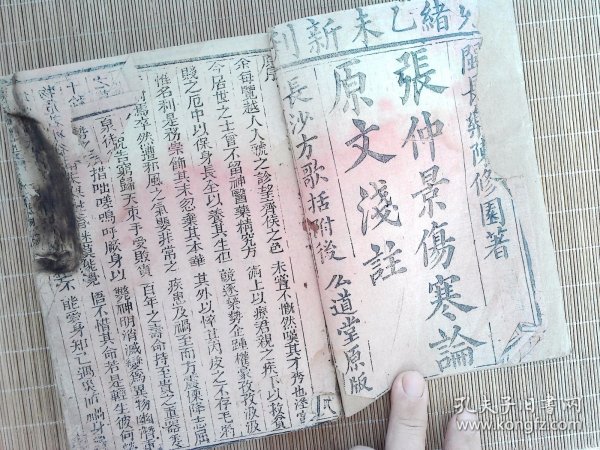 光緒乙未新刊
閩長樂陳修園著
張仲景傷寒論
原文淺註
長沙方歌括附後
公道堂原版
序
余每覽越人入虢之診望齊侯之色
未嘗不慨然嘆其才秀也怪
今居世之士曾不留神醫藥精究方
術上以療君親之疾下以救貧
賤之厄中以保身長全以養其生也
競逐榮勢企踵權豪孜孜汲
惟名利是務崇飾其末忽棄其本華
其外以悴其內皮之不存毛
卒然遭邪風之氣嬰非常之
疾患及禍至而方震慄降志屈
告窮歸天束手受敗賫
百年之壽命持至貴之重器委
措咄嗟嗚呼厥身以
斃神明消滅變為異物幽潛重
悟不惜其命若是輕生彼何
能愛身知己遇災值禍身
孔夫子旧书网
www.kongfz.com